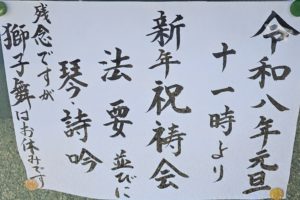 令和八年元旦
十一時より
新年祝祷会
法要並びに
琴・詩吟
残念ですが
獅子舞はお休みです